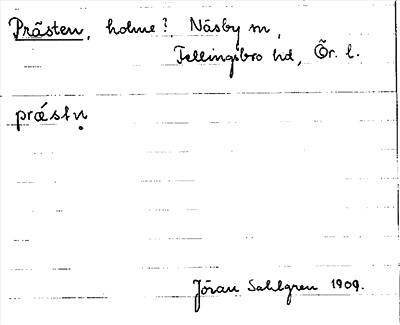 Prästen, holme? Näsby sn,
Fellingsbro hd, Ör. l.
præ´stṇ
Jöran Sahlgren 1909.